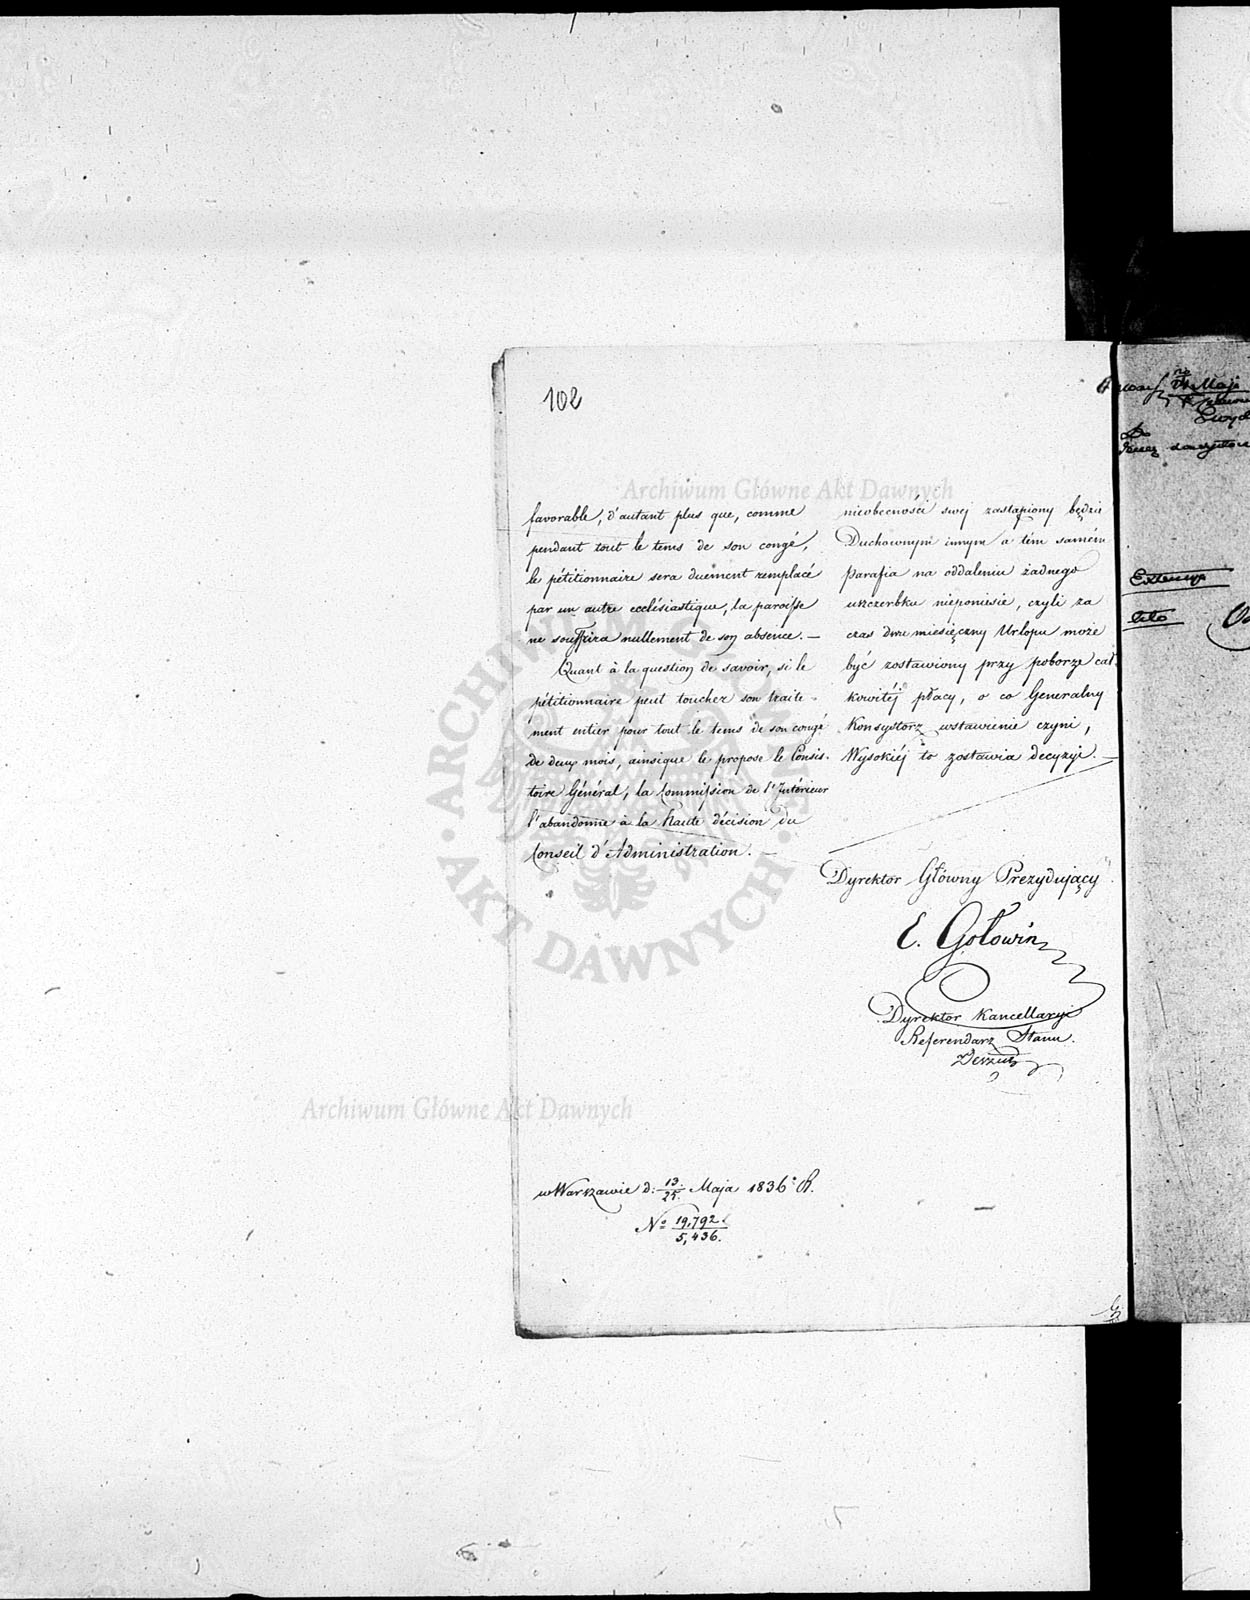 102
Archiwum Główne Akt Dawnych
favorable, d'autant plus que, comme
pendant tout le tems de son congé,
le pétitionnaire sera duement remplacé
par un autre ecclésiastique, la paroisse
ne souffrira nullement de son absence. —
Quant à la question de savoir, si le
pétitionnaire peut toucher son traite-
ment entier pour tout le tems de son congé
de deux mois, ainsique le propose le Consis-
toire Général, la Commission de l'Intérieur
l'abandonne à la Haute décision du
Conseil d'Administration. —
nieobecności swej zastąpiony będzie
Duchownym innym a tém samém
Parafia na oddaleniu żadnego
uszczerbku nieponiesie, czyli za
czas dwu miesięczny Urlopu może
być zostawiony przy poborze cał-
kowitéj płacy, o co Generalny
Konsystorz wstawienie czyni,
Wysokiéj to zostawia decyzyi. —
Dyrektor Główny Prezydujący
E. Gołowin
Dyrektor Kancellaryi
Referendarz Stanu.
w Warszawie d: 13/25. Maja 1836 R.
Nº 19,792/5,436.
ARCHIWUM GŁÓWNE AKT DAWNYCH
Archiwum Główne Akt Dawnych
Maja